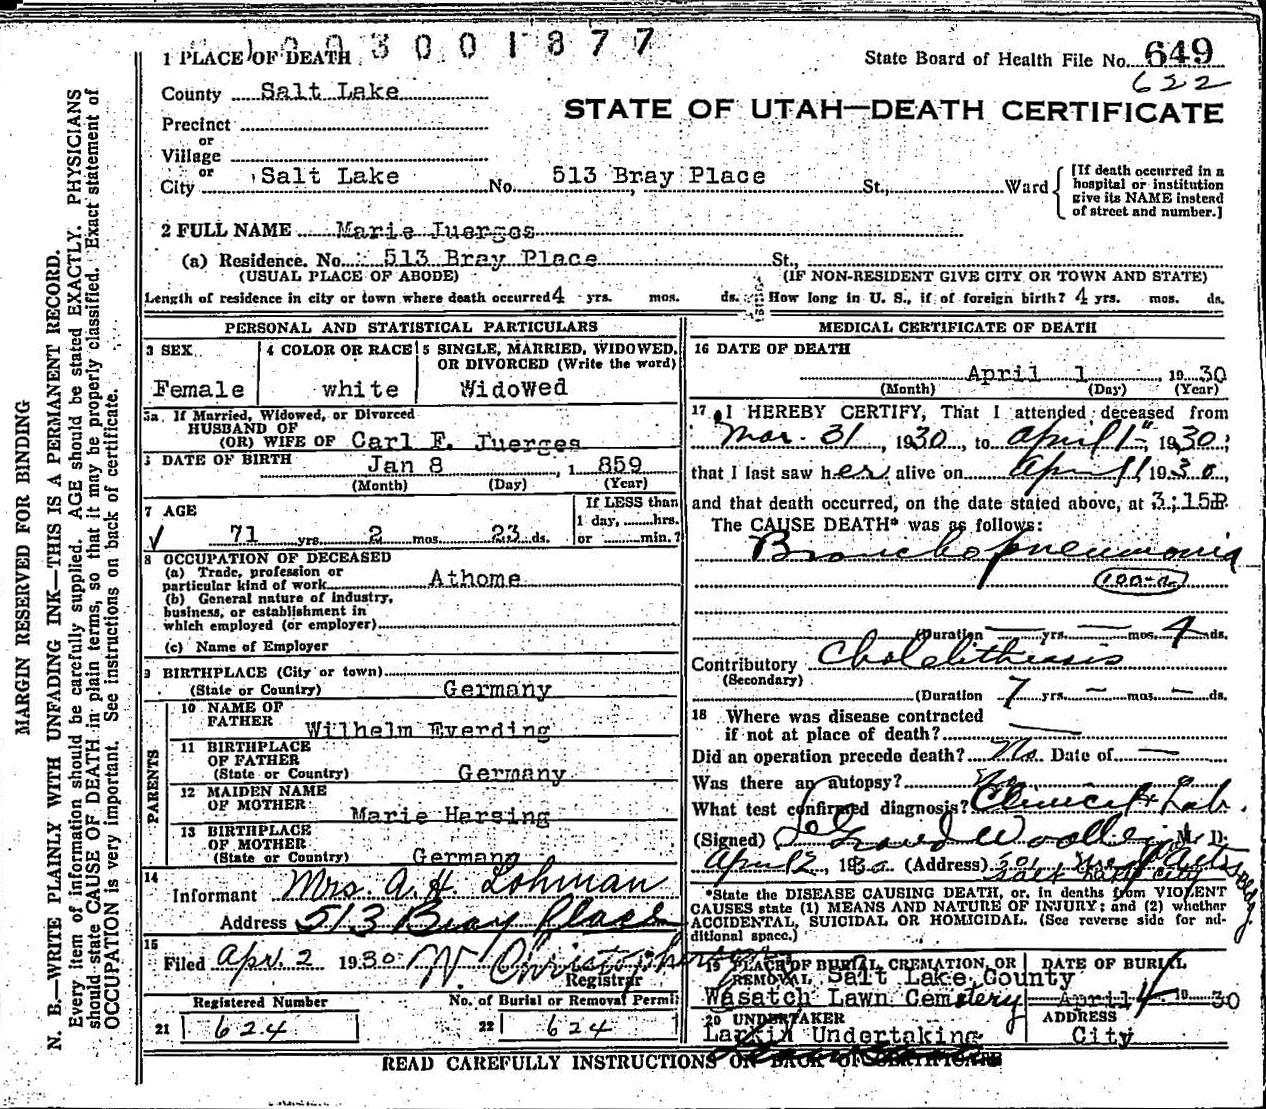 3001877
1 PLACE OF DEATH
State Board of Health File No. 649
622
County Salt Lake
STATE OF UTAH—DEATH CERTIFICATE
Precinct
or
Village
or
City Salt Lake No. 513 Bray Place St., Ward
[If death occurred in a hospital or institution give its NAME instead of street and number.]
2 FULL NAME Marie Juerges
(a) Residence. No. 513 Bray Place St.,
(USUAL PLACE OF ABODE) (IF NON-RESIDENT GIVE CITY OR TOWN AND STATE)
Length of residence in city or town where death occurred 4 yrs. mos. ds. How long in U. S., if of foreign birth? 4 yrs. mos. ds.
PERSONAL AND STATISTICAL PARTICULARS
3 SEX
Female
4 COLOR OR RACE
white
5 SINGLE, MARRIED, WIDOWED,
OR DIVORCED (Write the word)
Widowed
5a If Married, Widowed, or Divorced
HUSBAND OF
(OR) WIFE OF Carl F. Juerges
DATE OF BIRTH
Jan 8, 1859
(Month) (Day) (Year)
7 AGE
71 yrs. 2 mos. 23 ds.
If LESS than
1 day, hrs.
or min.?
8 OCCUPATION OF DECEASED
(a) Trade, profession or
particular kind of work Athome
(b) General nature of industry,
business, or establishment in
which employed (or employer)
(c) Name of Employer
9 BIRTHPLACE (City or town)
(State or Country) Germany
PARENTS
10 NAME OF
FATHER Wilhelm Everding
11 BIRTHPLACE
OF FATHER
(State or Country) Germany
12 MAIDEN NAME
OF MOTHER Marie Harsing
13 BIRTHPLACE
OF MOTHER
(State or Country) Germany
14
Informant Mrs. A. H. Lohman
Address 513 Bray Place
15
Filed Apr. 2 1930 W. Christopherson
Registrar
Registered Number
21 624
No. of Burial or Removal Permit
22 624
MEDICAL CERTIFICATE OF DEATH
16 DATE OF DEATH
April 1, 1930
(Month) (Day) (Year)
17 I HEREBY CERTIFY, That I attended deceased from
Mar. 31, 1930, to April 1 1930;
that I last saw her alive on April 1 1930,
and that death occurred, on the date stated above, at 3:15P.
The CAUSE DEATH* was as follows:
Bronchopneumonia
(Duration — yrs. — mos. 4 ds.
Contributory Cholelithiasis
(Secondary)
(Duration 7 yrs. — mos. — ds.
18 Where was disease contracted
if not at place of death? —
Did an operation precede death? No. Date of —
Was there an autopsy? No
What test confirmed diagnosis? Clinical & Lab.
(Signed) Woolley M. D.
April 2, 1930 (Address)
Salt Lake City
*State the DISEASE CAUSING DEATH, or, in deaths from VIOLENT
CAUSES state (1) MEANS AND NATURE OF INJURY; and (2) whether
ACCIDENTAL, SUICIDAL OR HOMICIDAL. (See reverse side for ad-
ditional space.)
19 PLACE OF BURIAL, CREMATION, OR
REMOVAL Salt Lake County
Wasatch Lawn Cemetery
DATE OF BURIAL
April 4 1930
20 UNDERTAKER
Larkin Undertaking
ADDRESS
City
READ CAREFULLY INSTRUCTIONS ON BACK OF CERTIFICATE
MARGIN RESERVED FOR BINDING
N. B.—WRITE PLAINLY WITH UNFADING INK—THIS IS A PERMANENT RECORD.
Every item of information should be carefully supplied. AGE should be stated EXACTLY. PHYSICIANS
should state CAUSE OF DEATH in plain terms, so that it may be properly classified. Exact statement of
OCCUPATION is very important. See instructions on back of certificate.